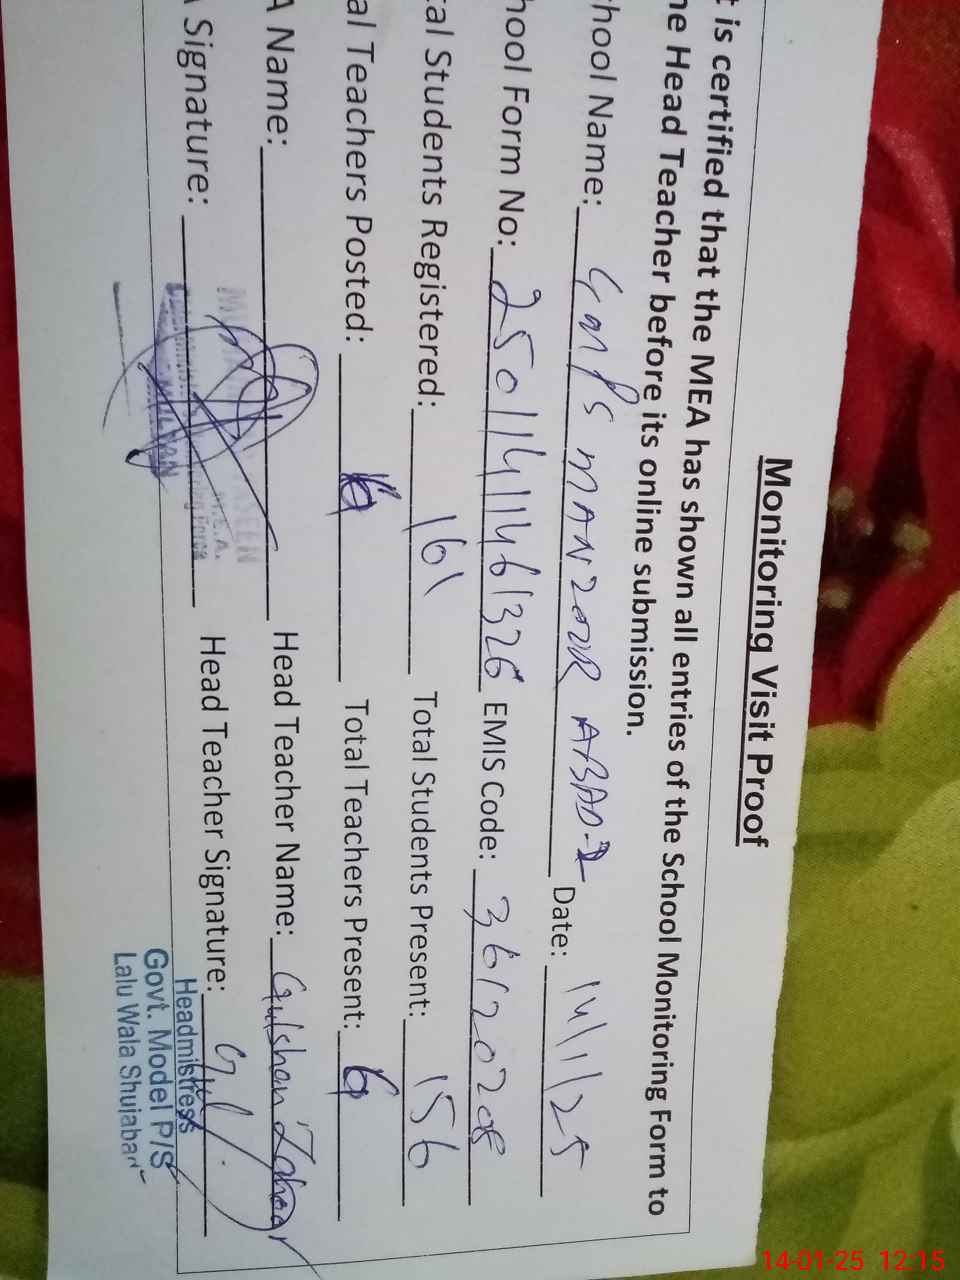 Monitoring Visit Proof
t is certified that the MEA has shown all entries of the School Monitoring Form to
he Head Teacher before its online submission.
hool Name: GMPS MANZOOR ABAD-2 Date: 14/1/25
hool Form No: 25011411461326 EMIS Code: 36120208
tal Students Registered: 161 Total Students Present: 156
al Teachers Posted: 6 Total Teachers Present: 6
A Name: Head Teacher Name: Gulshan Zahoor
A Signature: Head Teacher Signature: Gul
M.E.A.
Headmistress
Govt. Model P/S
Lalu Wala Shujabad
14-01-25 12:15